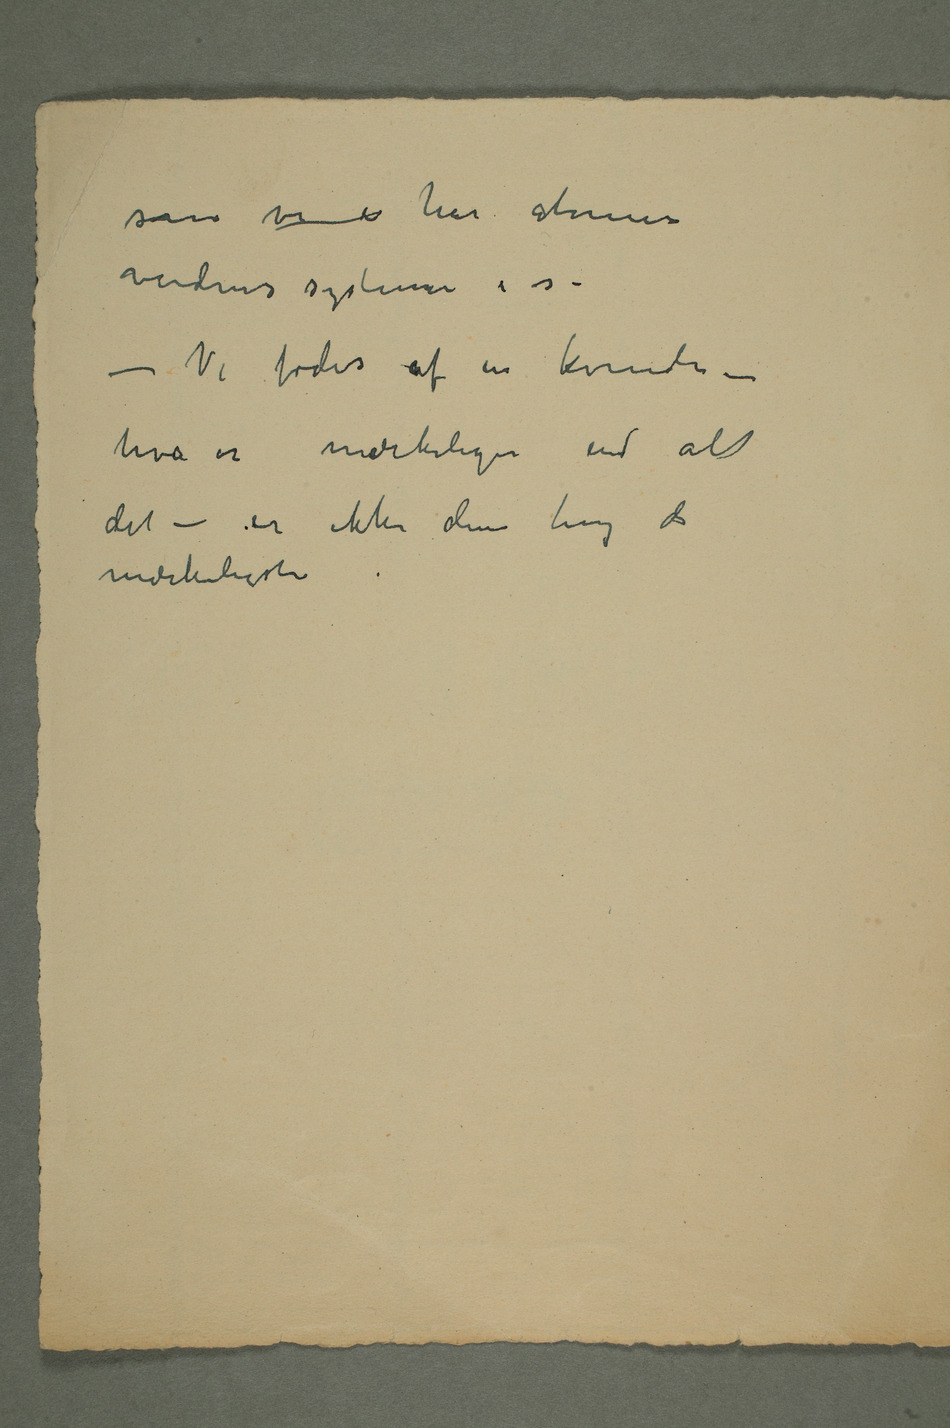 som har atomer
verdens systemer i s –
– Vi fødes af en kvinde –
hva er mærkeligere end alt
det – er ikke ting de
mærkeligste